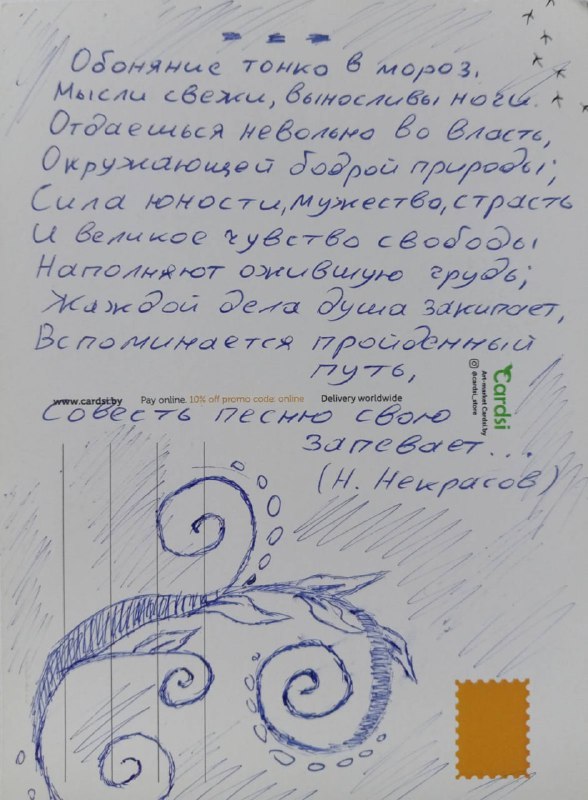 Обоняние тонко в мороз,
Мысли свежи, выносливы ноги.
Отдаешься невольно во власть,
Окружающей бодрой природы;
Сила юности, мужество, страсть
И великое чувство свободы
Наполняют ожившую грудь;
Жаждой дела душа закипает,
Вспоминается пройденный
путь,
www.cardsi.by Pay online. 10% off promo code: online Delivery worldwide
Совесть песню свою
запевает...
(Н. Некрасов)
Cardsi
Art-market Cardsi.by
@cardsi_store